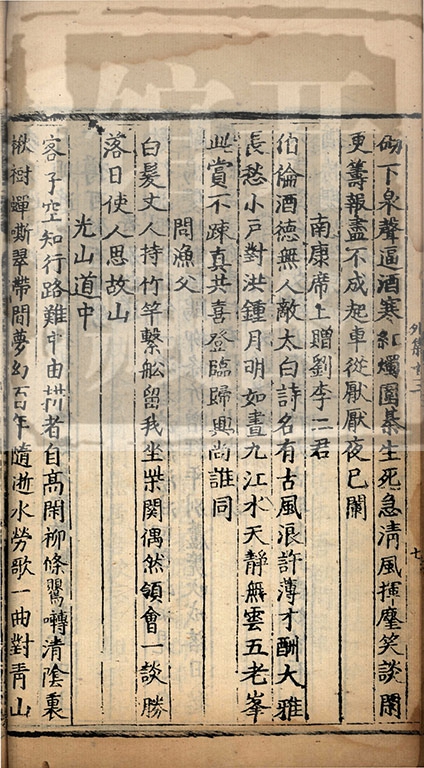 砌下泉聲逼酒寒紅燭圍棊生死急清風揮麈笑談闌
更籌報盡不成起車從厭厭夜已闌
南康席上贈劉李二君
伯倫酒德無人敵太白詩名有古風浪許薄才酬大雅
長愁小戶對洪鍾月明如晝九江水天靜無雲五老峯
此賞不疎真共喜登臨歸興尚誰同
問漁父
白髮丈人持竹竿繫舩留我坐柴関偶然領會一談勝
落日使人思故山
光山道中
客子空知行路難中由拱者自髙閑柳條鸎囀清陰裏
楸樹蟬嘶翠帶間夢幻百年隨逝水勞歌一曲對青山
外集
七